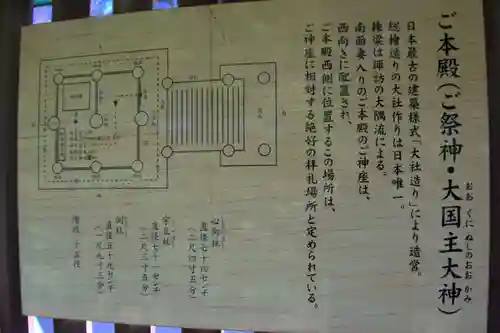 ご本殿(ご祭神・大国主大神)
おお くに ぬしのおお かみ
日本最古の建築様式「大社造り」により造営。
総檜造りの大社作りは日本唯一。
棟梁は諏訪の大隅流による。
南面妻入りのご本殿のご神座は、
西向きに配置され、
ご本殿西側に位置するこの場所は、
ご神座に相対する絶好の拝礼場所と定められている。
心御柱
直径七十四センチ
(二尺四寸五分)
宇豆柱
直径七十一センチ
(二尺三寸五分)
側柱
直径五十九センチ
(一尺九寸三分)
階段 十五段